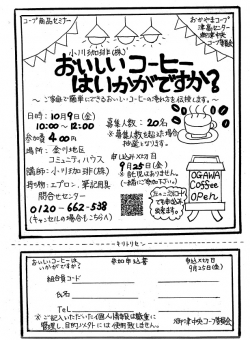 コープ商品セミナー
おかやまコープ
津高センター
御津中央
コープ委員会
小川珈琲(株)
おいしいコーヒー
はいかがですか?
～ご家庭で簡単にできるおいしいコーヒーの淹れ方を伝授します。～
日時：10月9日(金)
10:00～12:00
参加費 400円
場所：金川地区
コミュニティハウス
講師：小川珈琲(株)
持ち物：エプロン、筆記用具
問合せセンター
0120-662-538
(キャンセルの場合もこちらへ)
募集人数：20名
※募集人数を超えた場合
抽選となります。
申し込み〆切日
9月25日(金)
※託児はありません。
OGAWA
COFFEE
OPEN
キリトリセン
おいしいコーヒーは
いかがですか?
参加申込書
申込〆切日
9月25日(金)
組合員コード
氏名
Tel
※ご記入いただいた個人情報は厳重に
管理し、目的以外には使用致しません。
御津中央コープ委員会